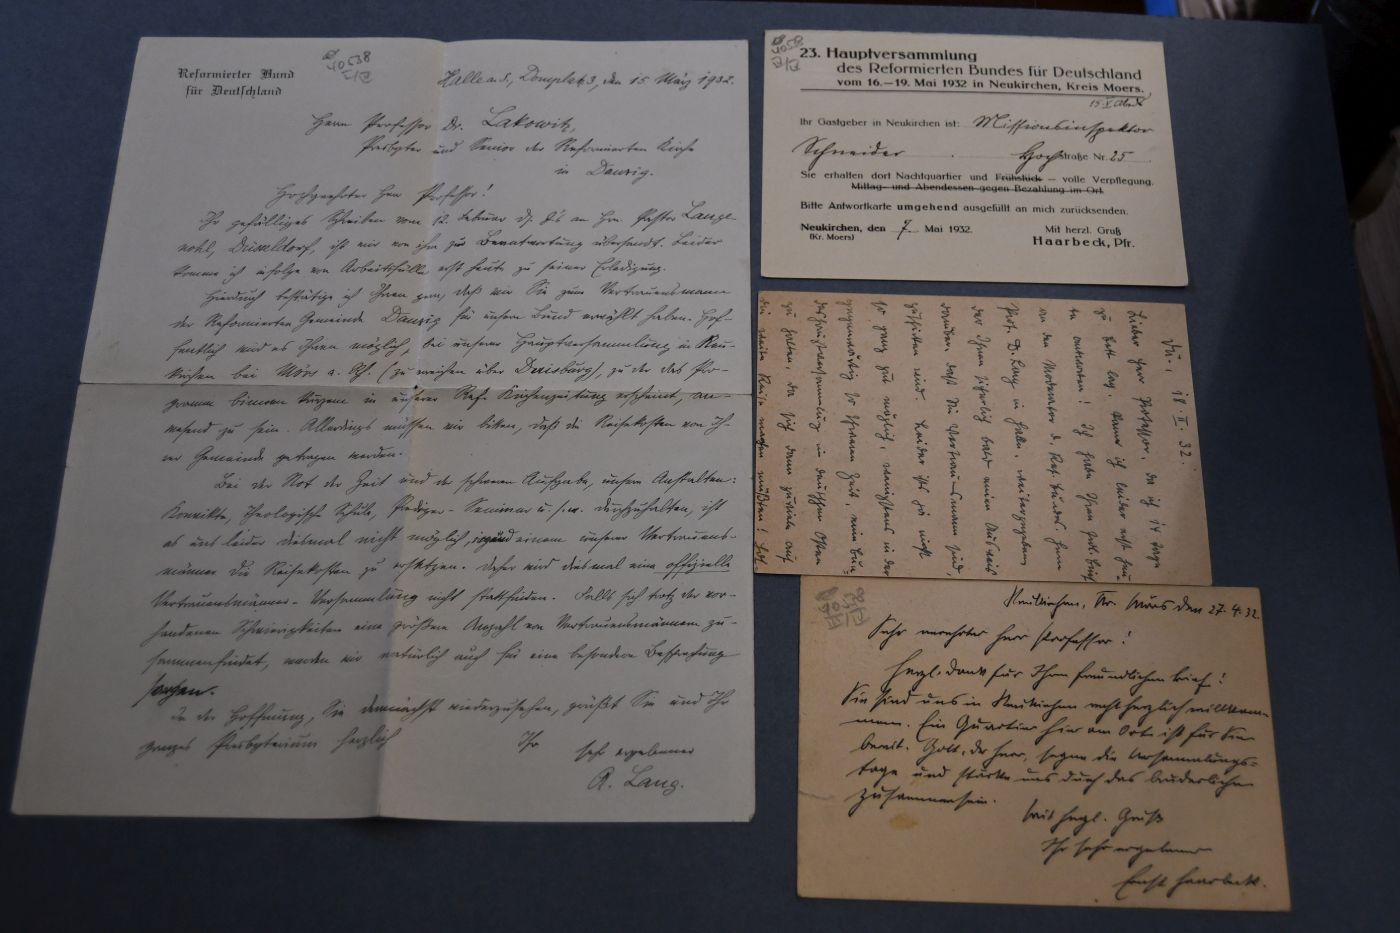 Reformierter Bund
für Deutschland
40538
I/I
Halle a. S., Domplatz 3, den 15. März 1932.
Herrn Professor Dr. Lakowitz,
Presbyter und Senior der Reformierten Kirche
in Danzig.
Hochgeehrter Herr Professor!
Ihr gefälliges Schreiben vom 12. Februar d. Js an Hrn Pastor Lange-
nohl, Düsseldorf, ist mir von ihm zur Beantwortung übersandt. Leider
komme ich infolge von Arbeitsfülle erst heute zu seiner Erledigung.
Hierdurch bestätige ich Ihnen gern, daß wir Sie zum Vertrauensmann
der Reformierten Gemeinde Danzig für unsern Bund erwählt haben. Hof-
fentlich wird es Ihnen möglich, bei unserer Hauptversammlung in Neu-
kirchen bei Mörs a. Rh. (zu reisen über Duisburg), zu der das Pro-
gramm binnen kurzem in unserer Ref. Kirchenzeitung erscheint, an-
wesend zu sein. Allerdings müssen wir bitten, daß die Reisekosten von Ih-
rer Gemeinde getragen werden.
Bei der Not der Zeit und der schweren Aufgabe, unsere Anstalten:
Konvikte, Theologische Schule, Prediger-Seminar u.s.w. durchzuhalten, ist
es uns leider diesmal nicht möglich, irgend einem unserer Vertrauens-
männer die Reisekosten zu ersetzen. Daher wird diesmal eine offizielle
Vertrauensmänner-Versammlung nicht stattfinden. Falls sich trotz der vor-
handenen Schwierigkeiten eine größere Anzahl von Vertrauensmännern zu-
sammenfindet, werden wir natürlich auch für eine besondere Besprechung
sorgen.
In der Hoffnung, Sie demnächst wiederzusehen, grüßt Sie und Ihr
ganzes Presbyterium herzlich
Ihr
sehr ergebener
A. Lang.
23. Hauptversammlung
des Reformierten Bundes für Deutschland
vom 16.—19. Mai 1932 in Neukirchen, Kreis Moers.
Ihr Gastgeber in Neukirchen ist: Missionsinspektor
Schneider Hochstraße Nr. 25
Sie erhalten dort Nachtquartier und Frühstück – volle Verpflegung.
Mittag- und Abendessen gegen Bezahlung im Ort.
Bitte Antwortkarte umgehend ausgefüllt an mich zurücksenden.
Neukirchen, den 7. Mai 1932.
(Kr. Moers)
Mit herzl. Gruß
Haarbeck, Pfr.
18. II. 32.
Lieber Herr Professor, da ich
zu Bett lag, kann ich leider erst heu-
te antworten! Ich habe Ihren Brief
an den Moderator d. Ref. Bundes, Herrn
Prof. D. Lang in Halle, weitergegeben,
der Ihnen sicherlich bald einen Ausweis
darüber, daß Sie Vertrauensmann sind,
zuschicken wird. Leider ist's ja nicht
so ganz gut möglich, wenigstens in der
gegenwärtig so schweren Zeit, eine Bun-
deshauptversammlung in deutschen Osten
zu halten, da sich dann zuviele auf
die weite Reise machen müßten!
Neukirchen, Kr. Mörs den 27.4.32.
Sehr verehrter Herr Professor!
Herzl. Dank für Ihren freundlichen Brief!
Sie sind uns in Neukirchen recht herzlich willkom-
men. Ein Quartier hier am Orte ist für Sie
bereit. Gott, der Herr, segne die Versammlungs-
tage und stärke uns durch das brüderliche
Zusammensein.
Mit herzl. Gruß
Ihr sehr ergebener
Ernst Haarbeck.